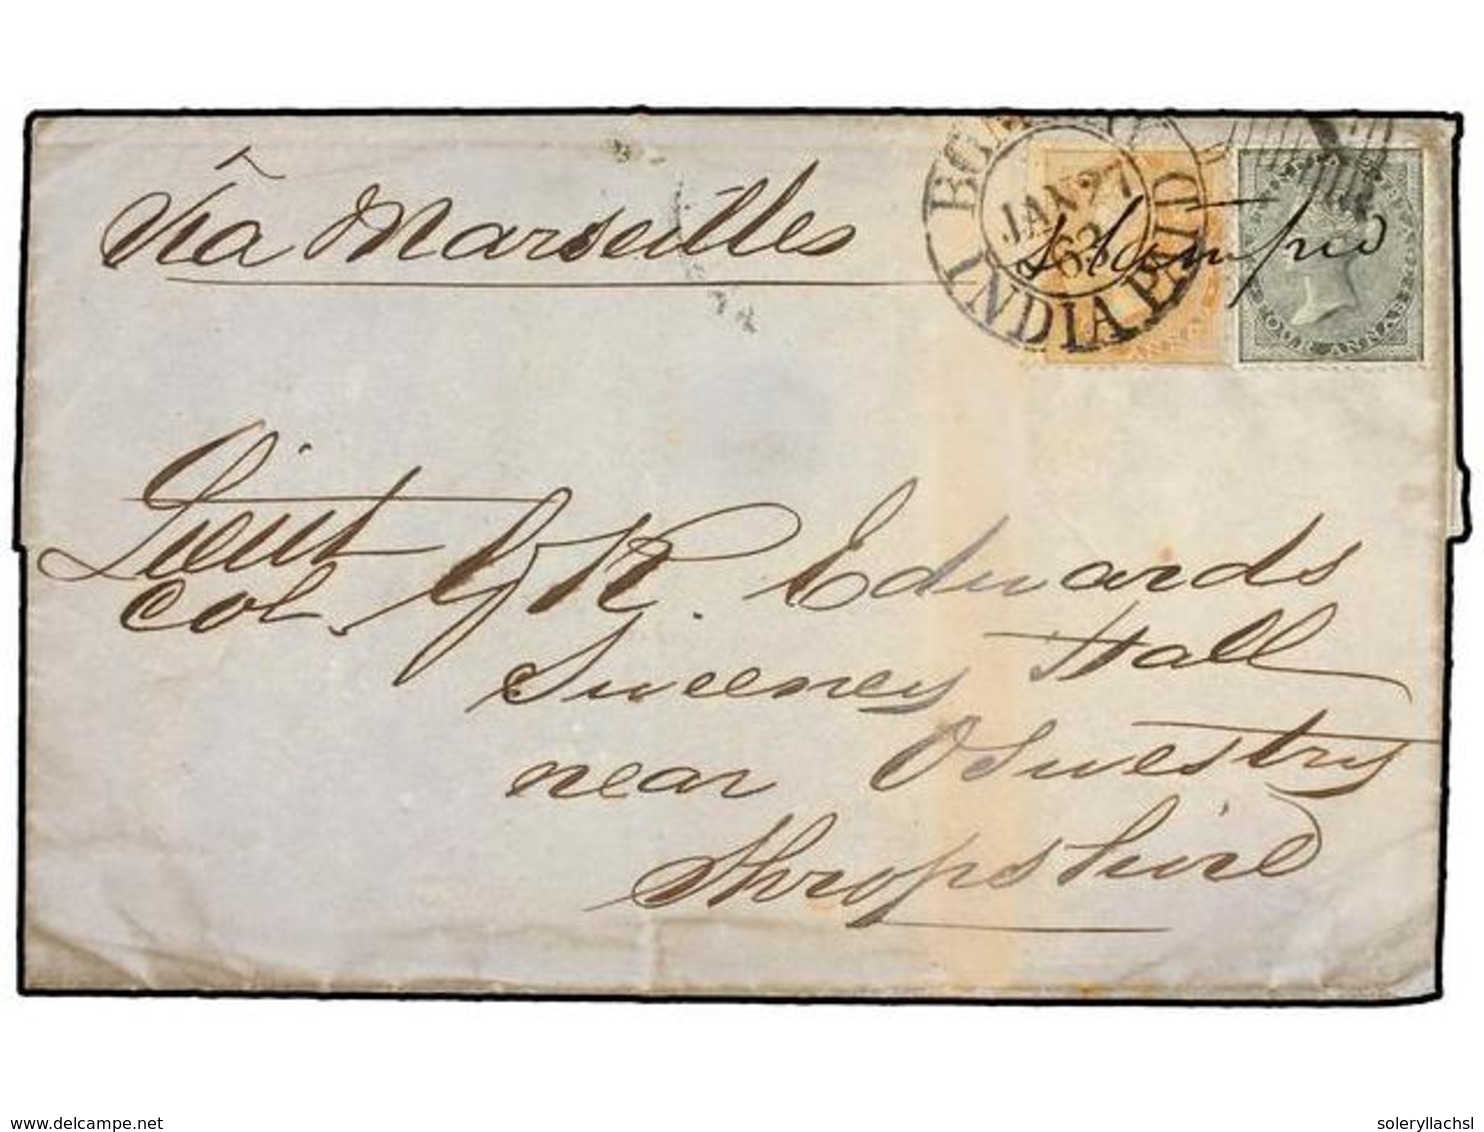 Via Marseilles
BOMBAY
JAN 27
63
INDIA PAID
Stamped
FOUR ANNAS
Lieut
Col. G R. Edwards
Sweeney Hall
near Oswestry
Shropshire
delcampe.net
soleryllachsl